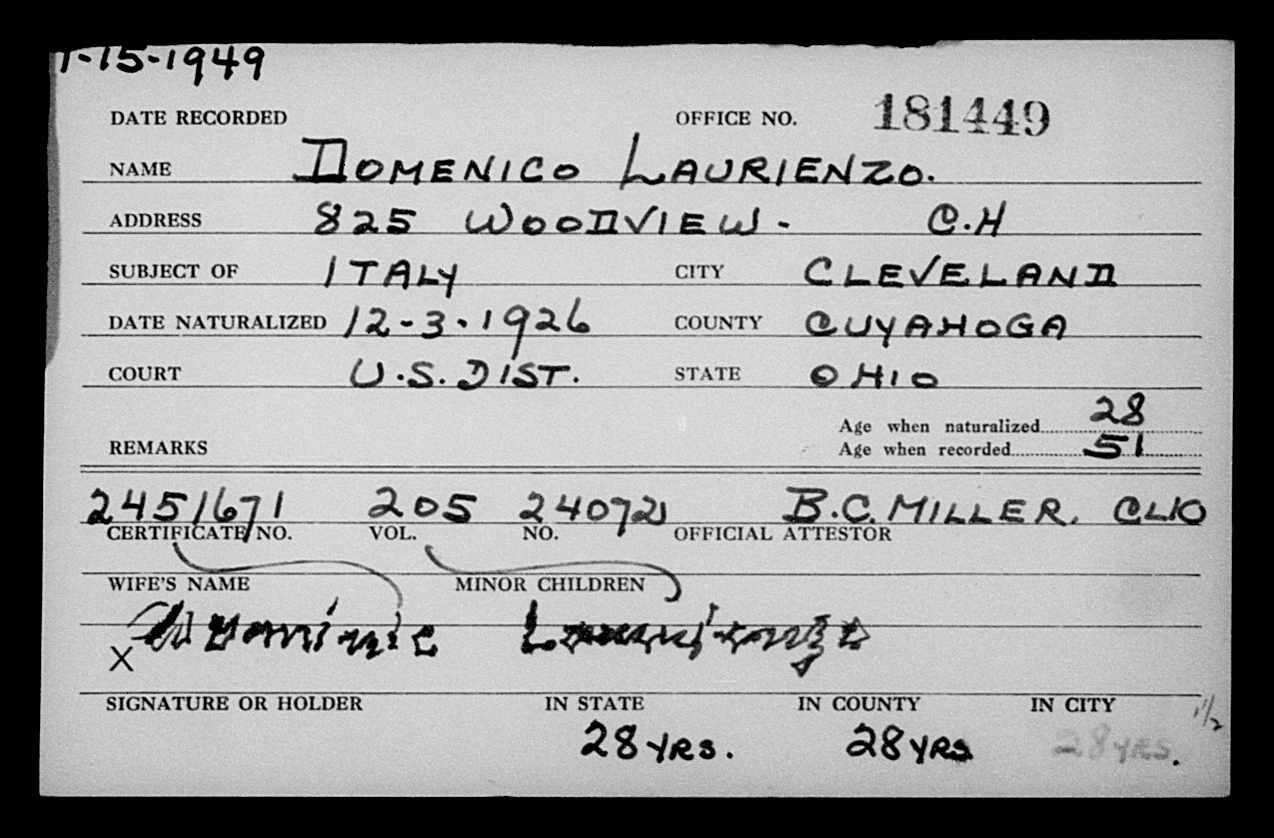 1-15-1949
DATE RECORDED OFFICE NO. 181449
NAME DOMENICO LAURIENZO.
ADDRESS 825 WOODVIEW - C.H
SUBJECT OF ITALY CITY CLEVELAND
DATE NATURALIZED 12-3-1926 COUNTY CUYAHOGA
COURT U.S. DIST. STATE OHIO
Age when naturalized 28
REMARKS Age when recorded 51
2451671 205 24072 B.C. MILLER, CLIO
CERTIFICATE NO. VOL. NO. OFFICIAL ATTESTOR
WIFE'S NAME MINOR CHILDREN
X
SIGNATURE OR HOLDER IN STATE IN COUNTY IN CITY 1/2
28 YRS. 28 YRS 28 YRS.